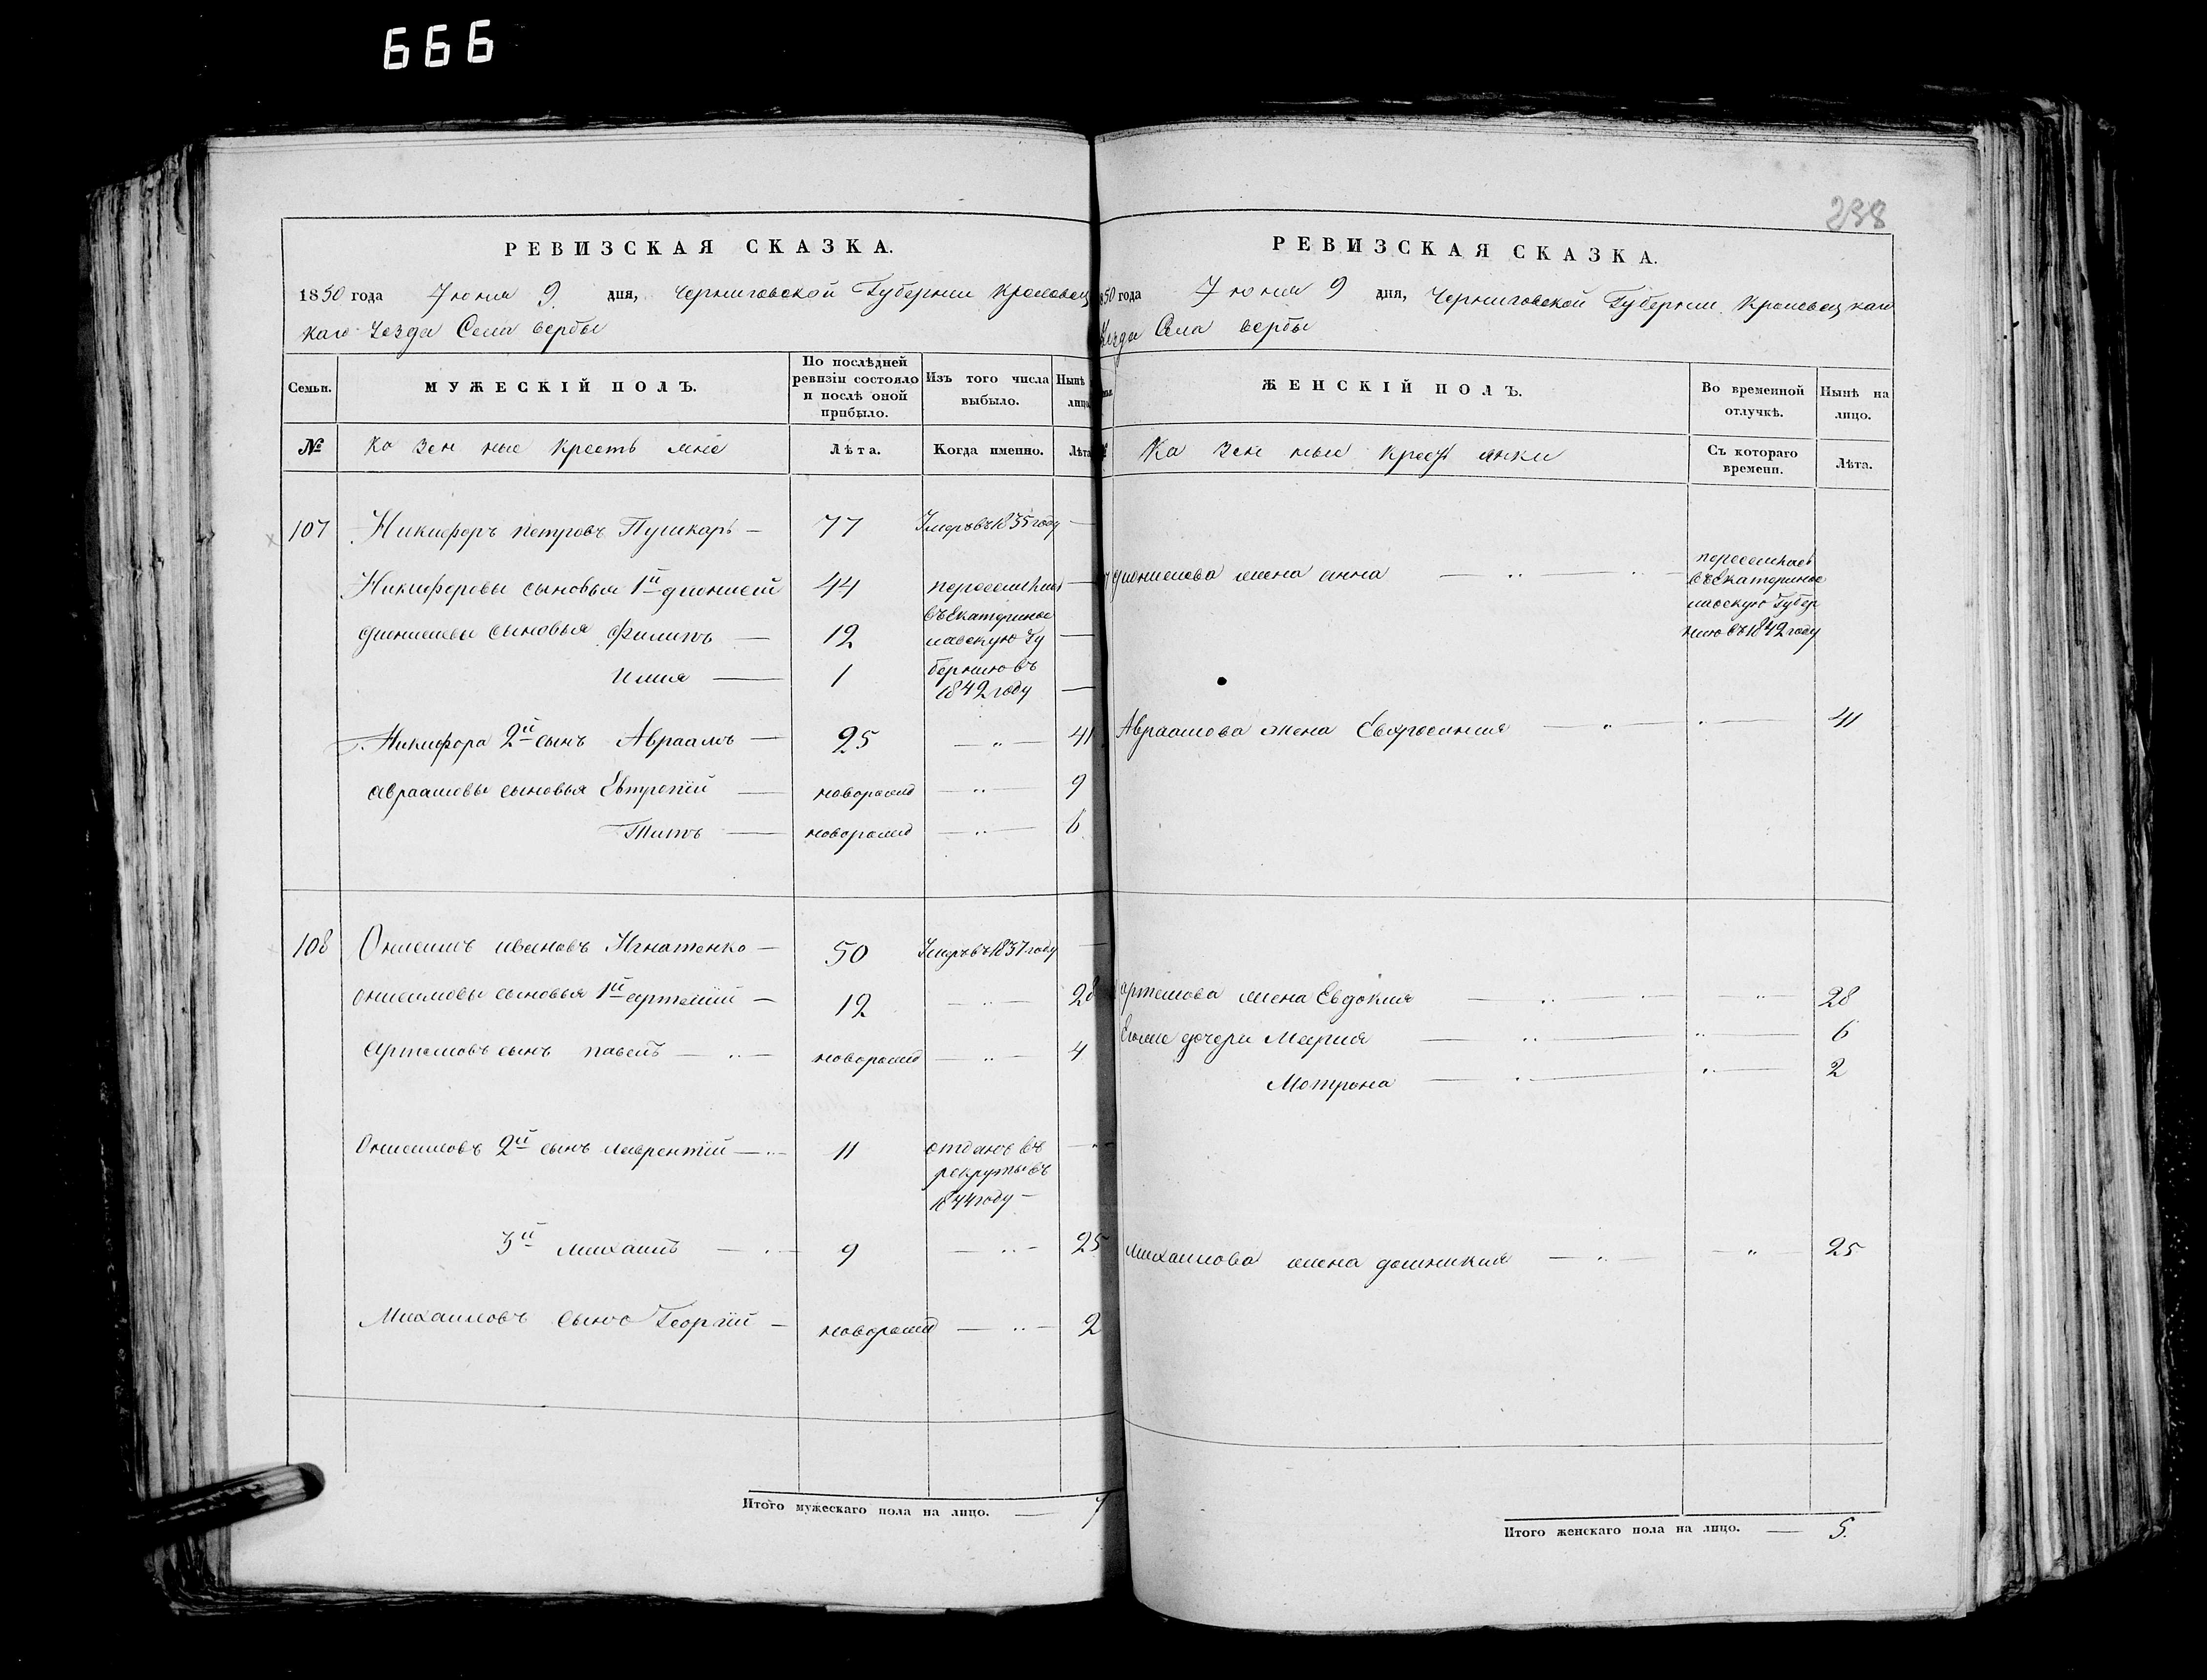 666
238
РЕВИЗСКАЯ СКАЗКА.
1850 года Июня 9. дня, Черниговской Губернии Кролевец
каго Уезда Села вербы
Семьи.
МУЖЕСКІЙ ПОЛЪ.
По послѣдней ревизіи состояло и послѣ оной прибыло.
Изъ того числа выбыло.
Нынѣ
лицо
№
Ка зен ные Кресть яне
Лѣта.
Когда именно.
Лѣта
107 Никифоръ петровъ Пушкарь — 77 Умеръ въ 1835 году —
Никифоровы сыновья 1й дионисий 44 переселился —
дионисиевы сыновья Филипъ — 12 въ Екатеринос
лавскую Гу —
Илия — 1 бернию въ
1842 году —
Никифора 2й сынъ Авраамъ — 25 — „ — 41
авраамовы сыновья Евтропий — новорожд — „ — 9
Титъ — новорожд — „ — 6
108 Онисимъ ивановъ Игнатенко — 50 Умеръ въ 1837 году —
онисимовы сыновья 1й артемий — 12 — „ — 28
Артемовъ сынъ павелъ — „ — новорожд — „ — 4
Онисимовъ 2й сынъ лаврентий — „ — 11 отданъ въ — „ —
рекруты въ
1844 году —
3й михаилъ — „ — 9 — „ — 25
Михаиловъ сынъ Георгий — новорожд — „ — 2
Итого мужескаго пола на лицо. — 7
РЕВИЗСКАЯ СКАЗКА.
1850 года Июня 9 дня, Черниговской Губернии Кролевец каго
Уезда Села вербы
ЖЕНСКІЙ ПОЛЪ.
Во временной отлучкѣ.
Нынѣ на лицо.
Ка зен ные Крест янки
Съ котораго времени.
Лѣта.
дионисиова жена анна — „ — „ — переселилась
въ Екатеринос
лавскую Губер
нию въ 1842 году
Авраамова жена Евфросиния — „ — „ — 41
артемова жена Евдокия — „ — „ — 28
Егоже дочери Мария — „ — „ — 6
Мотрона — „ — „ — 2
михаилова жена домникия — „ — „ 25
Итого женскаго пола на лицо. — 5.